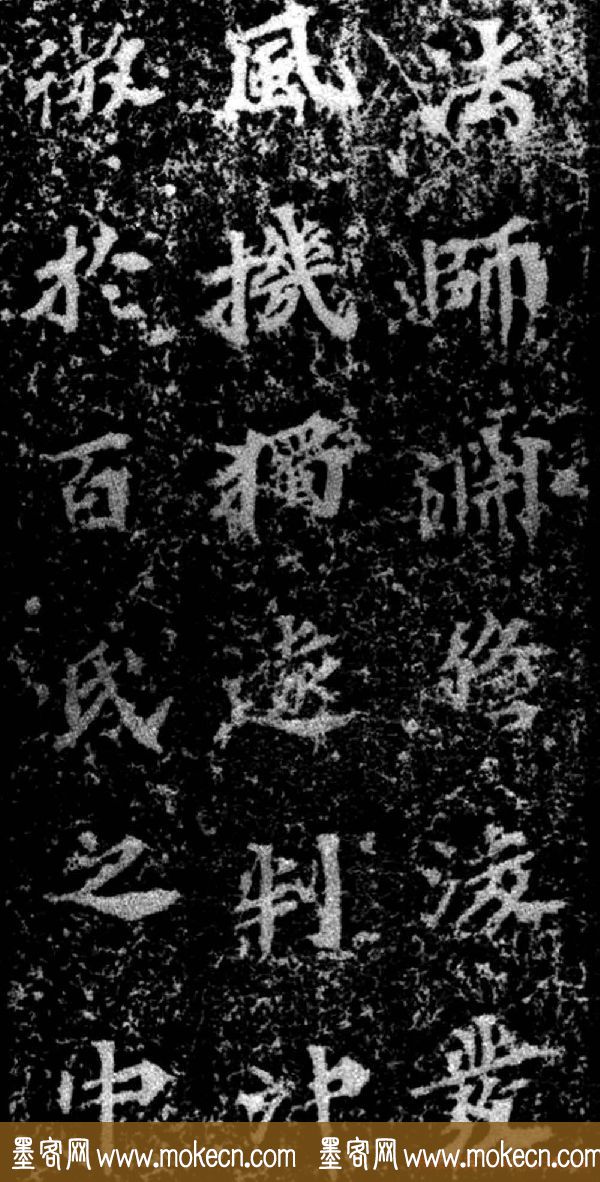 法師淵浚發
風機獨遠判沖
微於百氏之中
墨客网 www.mokecn.com 墨客网 www.mokecn.com